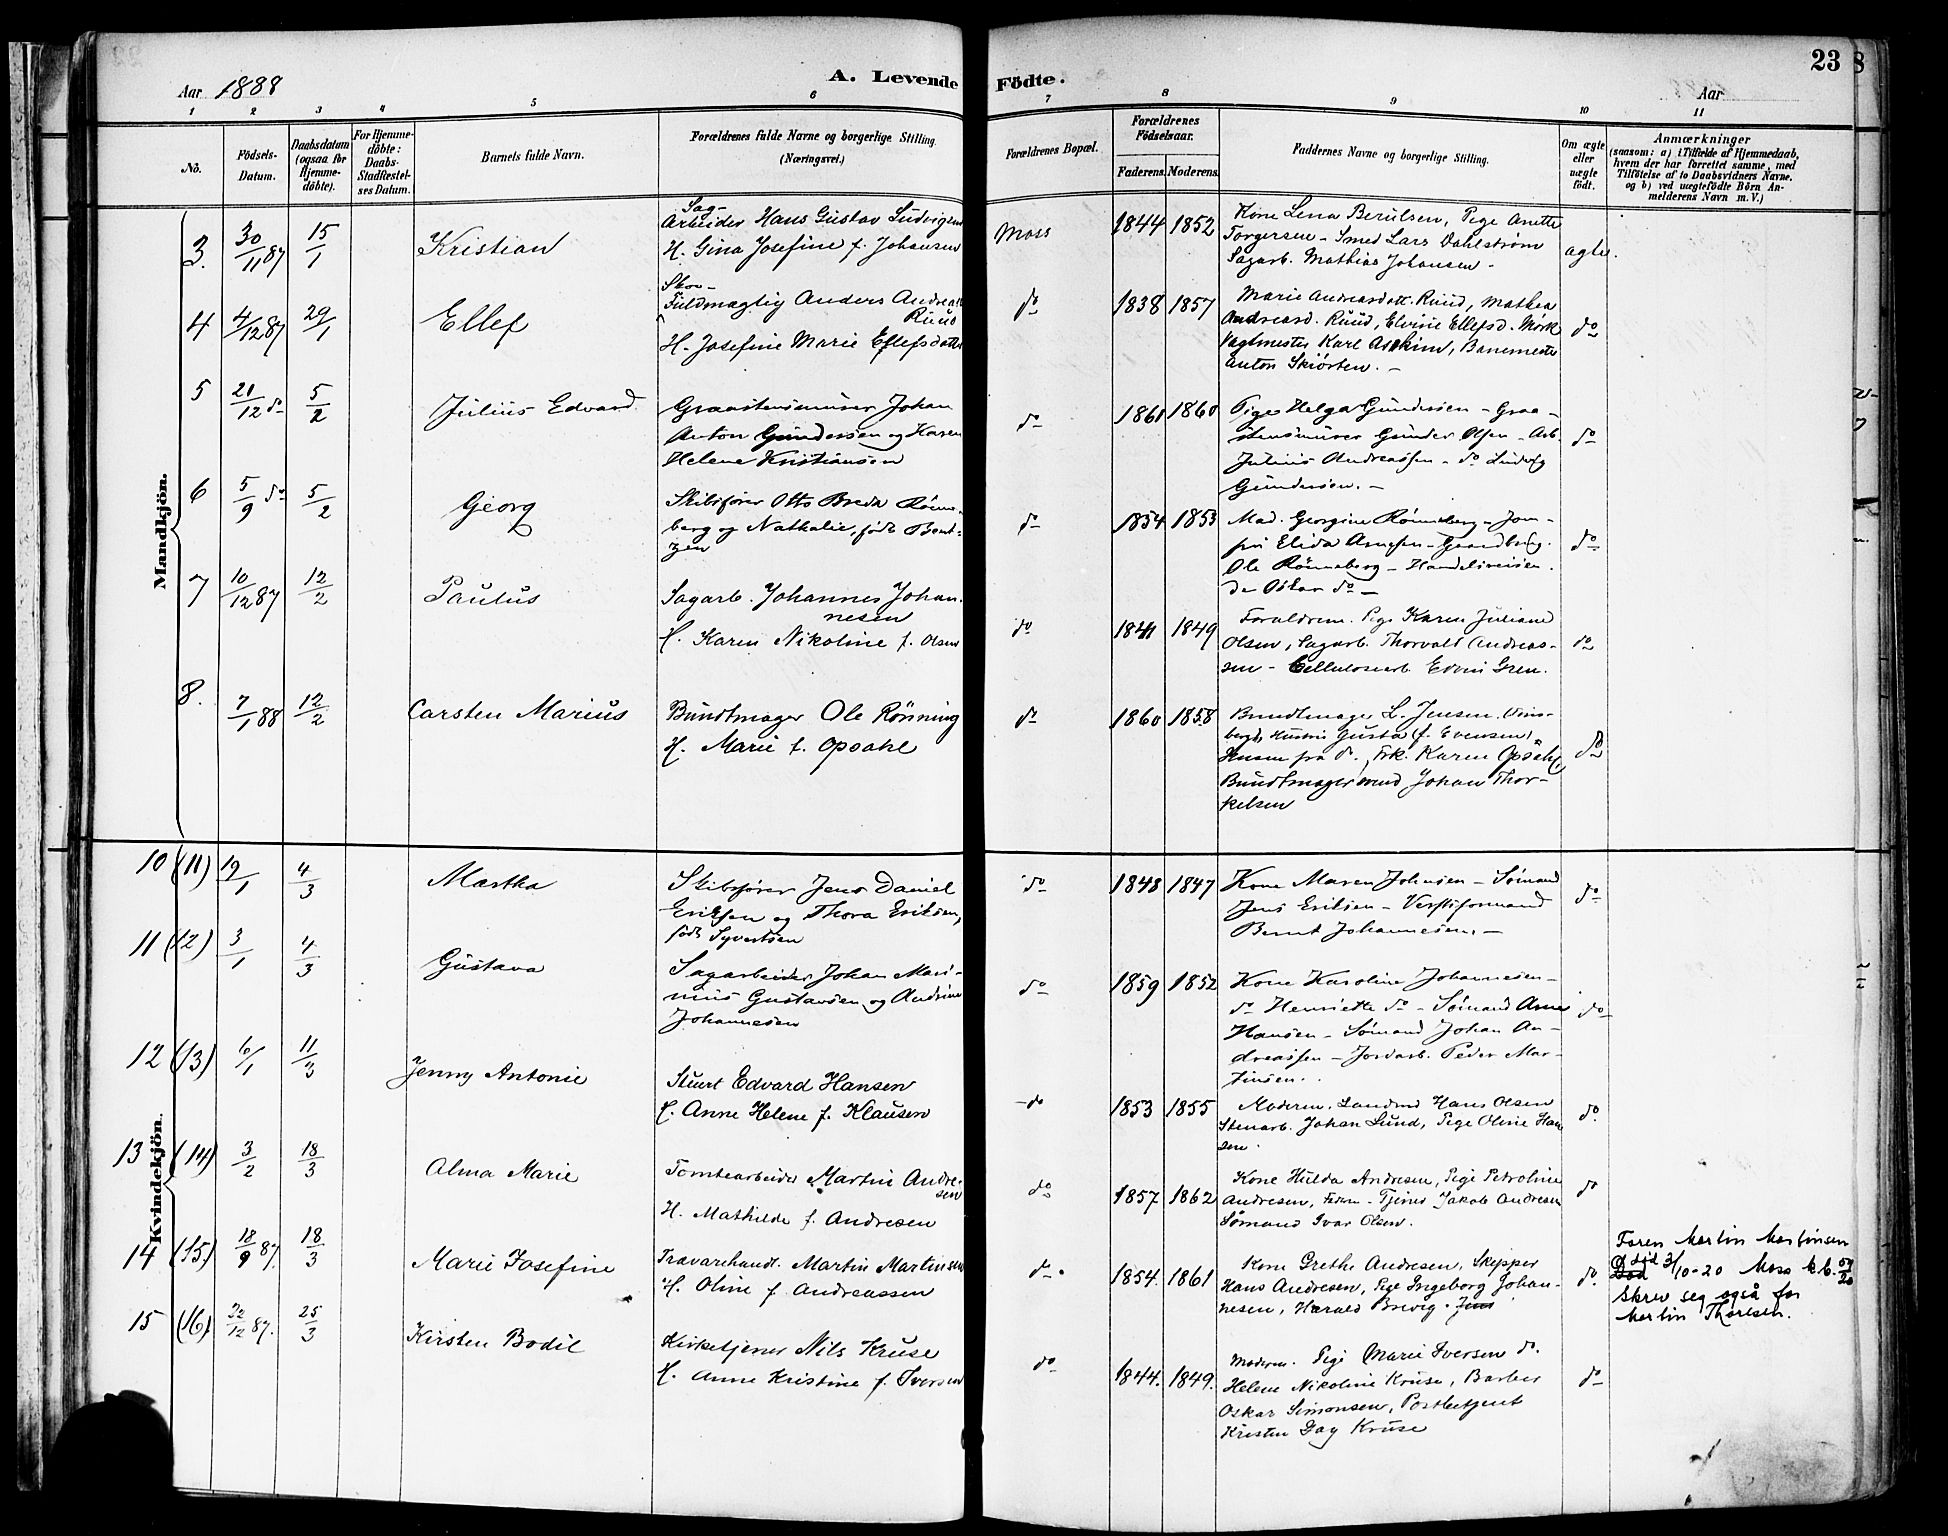 Aar 1888
A. Levende Födte.
23
Aar
1 2 3 4 5 6 7 8 9 10 11
No.
Födsels-Datum.
Daabsdatum (ogsaa for Hjemme-döbte).
For Hjemme-döbte: Daabs-Stadfæstel-ses Datum.
Barnets fulde Navn.
Forældrenes fulde Navne og borgerlige Stilling. (Næringsvei.)
Forældrenes Bopæl.
Forældrenes Födselsaar.
Faderens. Moderens.
Faddernes Navne og borgerlige Stilling.
Om ægte eller uægte födt.
Anmærkninger
(saasom: a) i Tilfælde af Hjemmedaab, hvem der har forrettet samme, med Tilföielse af to Daabsvidners Navne, og b) ved uægtefödte Börn Anmelderens Navn m. V.)
Mandkjön.
3. 30/11 87 15/1 Kristian
Sag-
Arbeider Hans Gustav Ludvigsen
H. Gina Josefine f. Johansen
Moss 1844 1852
Kone Lena Berulsen, Pige Anette
Torgersen - Smed Lars Dahlstrøm
Sagarb. Mathias Johansen -
ægte.
4 4/12 87 29/1 Ellef
Skov-
Fuldmægtig Anders Andreas
Ruud
H. Josefine Marie Ellefsdatter
do 1838 1857
Marie Andreasdatt. Ruud, Mathea
Andreasd. Ruud, Elvine Ellefsd. Mørk
Vagtmester Karl Askim, Banemester
Anton Skiørten. -
do
5 21/12 do 5/2 Julius Edvard
Graastensmurer Johan
Anton Gundersen og Karen
Helene Kristiansen
do 1861 1860
Pige Helga Gundersen - Graa-
stensmurer Gunder Olsen - Arb.
Julius Andreassen - do Ludvig
Gundersen. -
do
6 5/9 do 5/2 Georg
Skibsfører Otto Breda Rønne-
berg og Nathalie, født Bent-
zen
do 1854 1853
Mad. Georgine Rønneberg - Jom-
fru Elida Arnesen -
Ole Rønneberg - Handelsreisen-
de Oskar do -
do
7 10/12 87 12/2 Paulus
Sagarb. Johannes Johan-
nesen
H. Karen Nikoline f. Olsen
do 1841 1849
Forældrene. Pige Karen Juliane
Olsen, Sagarb. Thorvald Andreas-
sen - Cellulosearb. Edvin Gren.
do
8. 7/1 88 12/2 Carsten Marius
Bundtmager Ole Rönning
H. Marie f. Opsahl
do 1860 1858
Bundtmager L. Jensen,
Hustru Gusta (f. Evensen),
Jensen fra do, Frk. Karen Opsahl,
Bundtmagersvend Johan Thor-
kelsen
do
Kvindekjön.
10 (11) 19/1 4/3 Martha
Skibsfører Jens Daniel
Eriksen og Thora Eriksen,
født Syvertsen
do 1848 1847
Kone Maren Johnsen - Sømand
Jens Eriksen - Verftsformand
Bernt Johannesen. -
do
11 (12) 3/1 4/3 Gustava
Sagarbeider Johan Mari-
nius Gustavsen og Andrine
Johannesen
do 1859 1852
Kone Karoline Johannesen -
do Henriette do - Sømand Arne
Hansen - Sømand Johan An-
dreassen - Jordarb. Peder Mar-
tinsen.
do
12 (13) 6/1 11/3 Jenny Antonie
Stuert Edvard Hansen
H. Anne Helene f. Klausen
do 1853 1855
Moderen. Landmd Hans Olsen
Stenarb. Johan Lund, Pige Oline Han
sen.
do.
13 (14) 3/2 18/3 Alma Marie
Tomtearbeider Martin Andre-
sen
H. Mathilde f. Andresen
do 1857 1862
Kone Hulda Andresen, Pige Petroline
Andresen, Faderen - Tjener Jakob Andresen
Sømand Ivar Olsen.
do
14 (15) 18/9 87. 18/3 Marie Josefine
Trævarehandl. Martin Martinsen
H. Oline f. Andreassen
do 1854. 1861
Kone Grethe Andresen, Skipper
Hans Andresen, Pige Ingeborg Johan-
nesen, Harald Brevig. Jens
do.
Faren Martin Martinsen
Død død 3/10-20 Moss k.b. 57/20
Skrev seg også for
Martin Thoresen.
15 (16) 22/12 87. 25/3 Kirsten Bodil
Kirketjener Nils Kruse
H. Anne Kristine f. Iversen
do 1844. 1849.
Moderen. Pige Marie Iversen do.
Helene Nikoline Kruse, Barber
Oskar Simonsen, Postbetjent
Kristen Dag Kruse
do